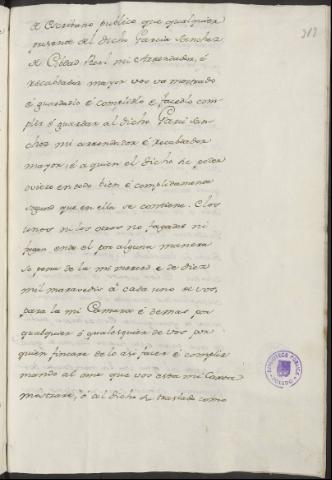 313
de Escribano publico que qualquier
persona del dicho Garcia Sanchez
de Cibdad Real mi Arrendador, é
recabdador mayor vos va mostrado
é guardadlo é complidlo é facedlo com-
plir é guardar al dicho Garci San-
chez mi arrendador é Recabdador
mayor, é a quien el dicho su poder
oviere en todo bien é complidamente
segund que en ella se contiene. E los
unos ni los otros no fagades ni
fagan ende al por alguna manera
so pena de la mi merced e de diez
mil maravedis á cada uno de vos,
para la mi Camara é demas por
qualquier ó qualesquier de vos por
quien fincare de lo asi facer é complir
mando al ome que vos esta mi Carta
mostrare, ó al dicho su traslado como
BIBLIOTECA PUBLICA
TOLEDO